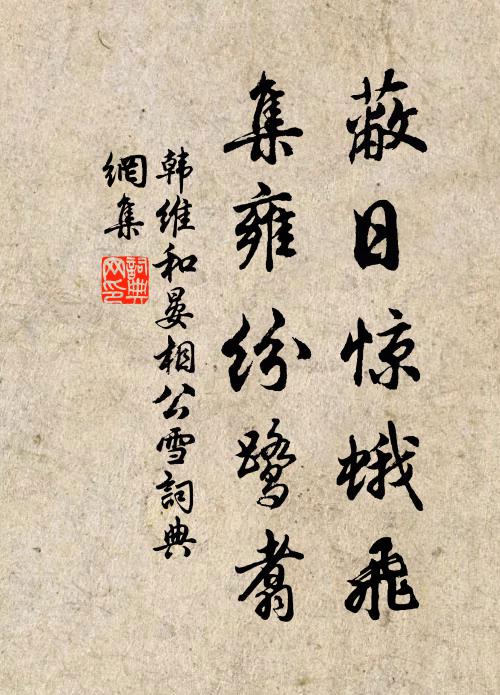 蔽日惊蛾飛
集雍纷鹭翥
韩维和晏相公雪詞典
網集
詞典網印